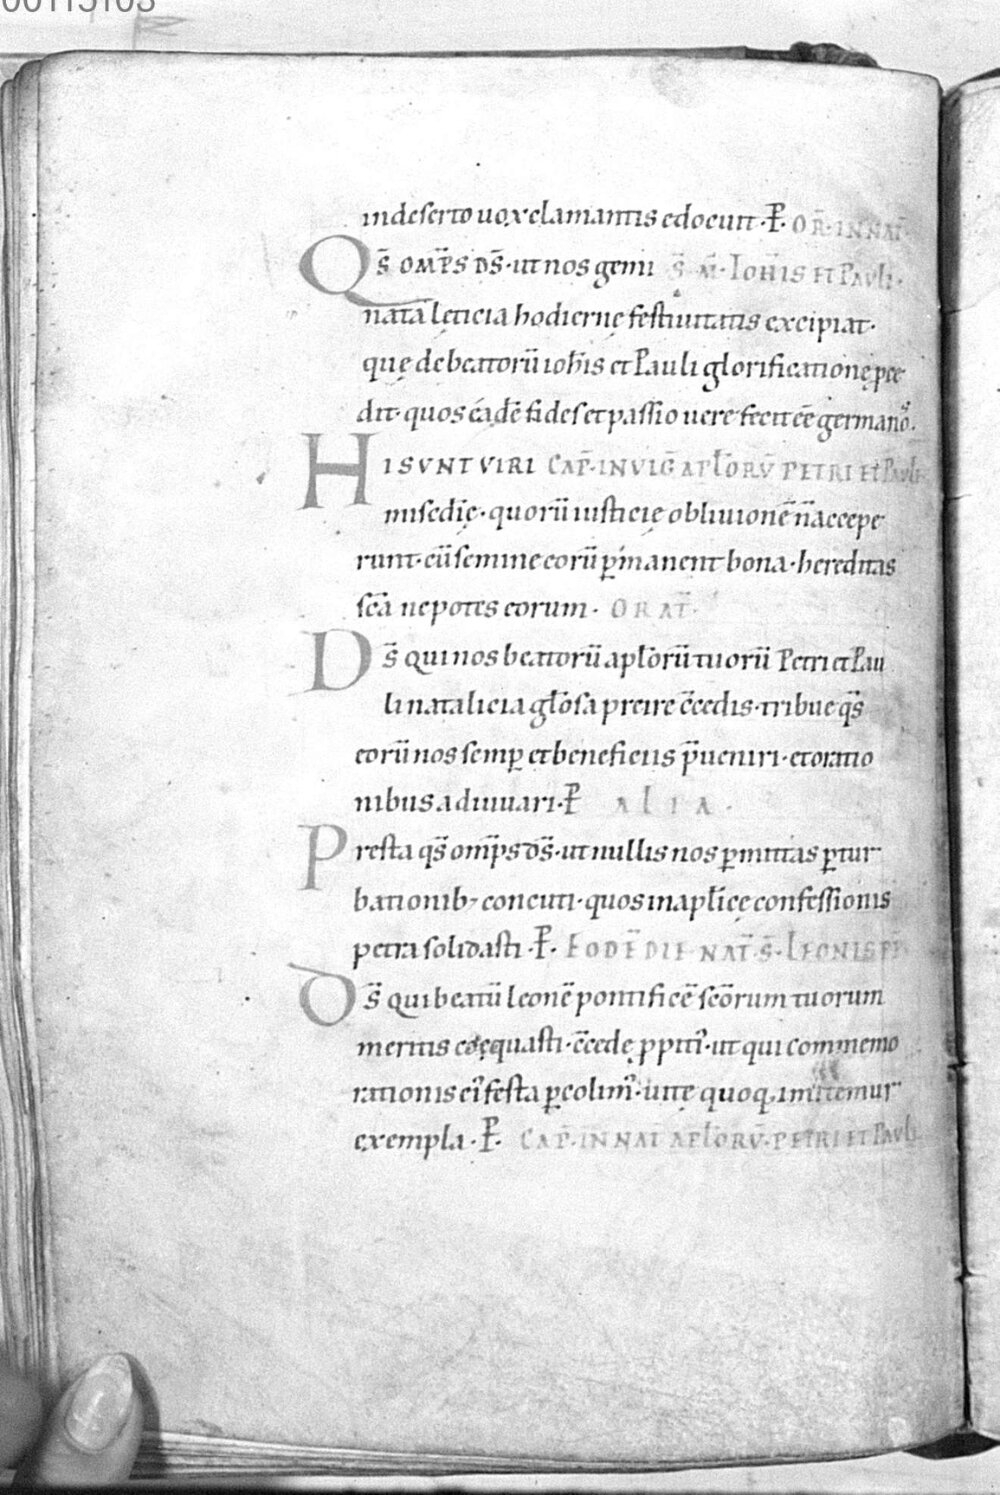 00115103
indeserto uox clamantis edocuit · P̄ · OR̄ · IN NAT̄ ·
Qs̄ OMP̄S DS̄ · ut nos gemi S̄ M̄ · IOH̄IS ET PAVLI ·
nata lęticia hodiernę festiuitatis excipiat ·
quę de beatorū ioh̄is et Pauli glorificationę pce
dit · quos eadē fides et passio uere fecit eē germanoˢ ·
HI SVNT VIRI CAP̄ · IN VIḠ APL̄ORV̄ PETRI ET PAVLI
misc̄dię · quorū iusticię obliuionē n̄ accepe
runt · cū semine eorū ꝑmanent bona · hereditas
sc̄a nepotes eorum · ORAT̄ ·
Ds̄ qui nos beatorū apl̄orū tuorū Petri et Pau
li natalicia gl̄osa preire c̄cedis · tribue qs̄
eorū nos semꝑ et beneficiis p̄ueniri · et oratio
nibus adiuuari · P̄ ALIA ·
Presta qs̄ omp̄s ds̄ · ut nullis nos ꝑmittas ꝑtur
bationib; concuti · quos in apl̄icę confessionis
petra solidasti · P̄ · EODĒ DIE NAT̄ · S̄ · LEONIS PP̄
Ds̄ qui beatū leonē pontificē sc̄orum tuorum
meritis coęquasti · c̄cede ꝓpitiˀ · ut qui commemo
rationis eiˀ festa ꝑcolimˀ · uitę quoq; imitemur
exempla · P̄ · CAP̄ · IN NAT̄ APL̄ORV̄ · PETRI ET PAVLI